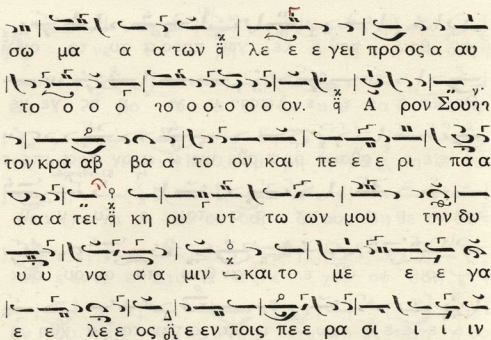 σω μα α α των λε ε ε γει προ ος α αυ
το ο ο ο ο ο ο ο ο ον. Α ρον Σου
τον κρα αβ βα α το ον και πε ε ε ρι πα α
α α α τει κη ρυ υτ τω ων μου την δυ
υ υ να α α μιν και το με ε ε γα
ε ε λε ε ος ε εν τοις πε ε ρα σι ι ι ιν